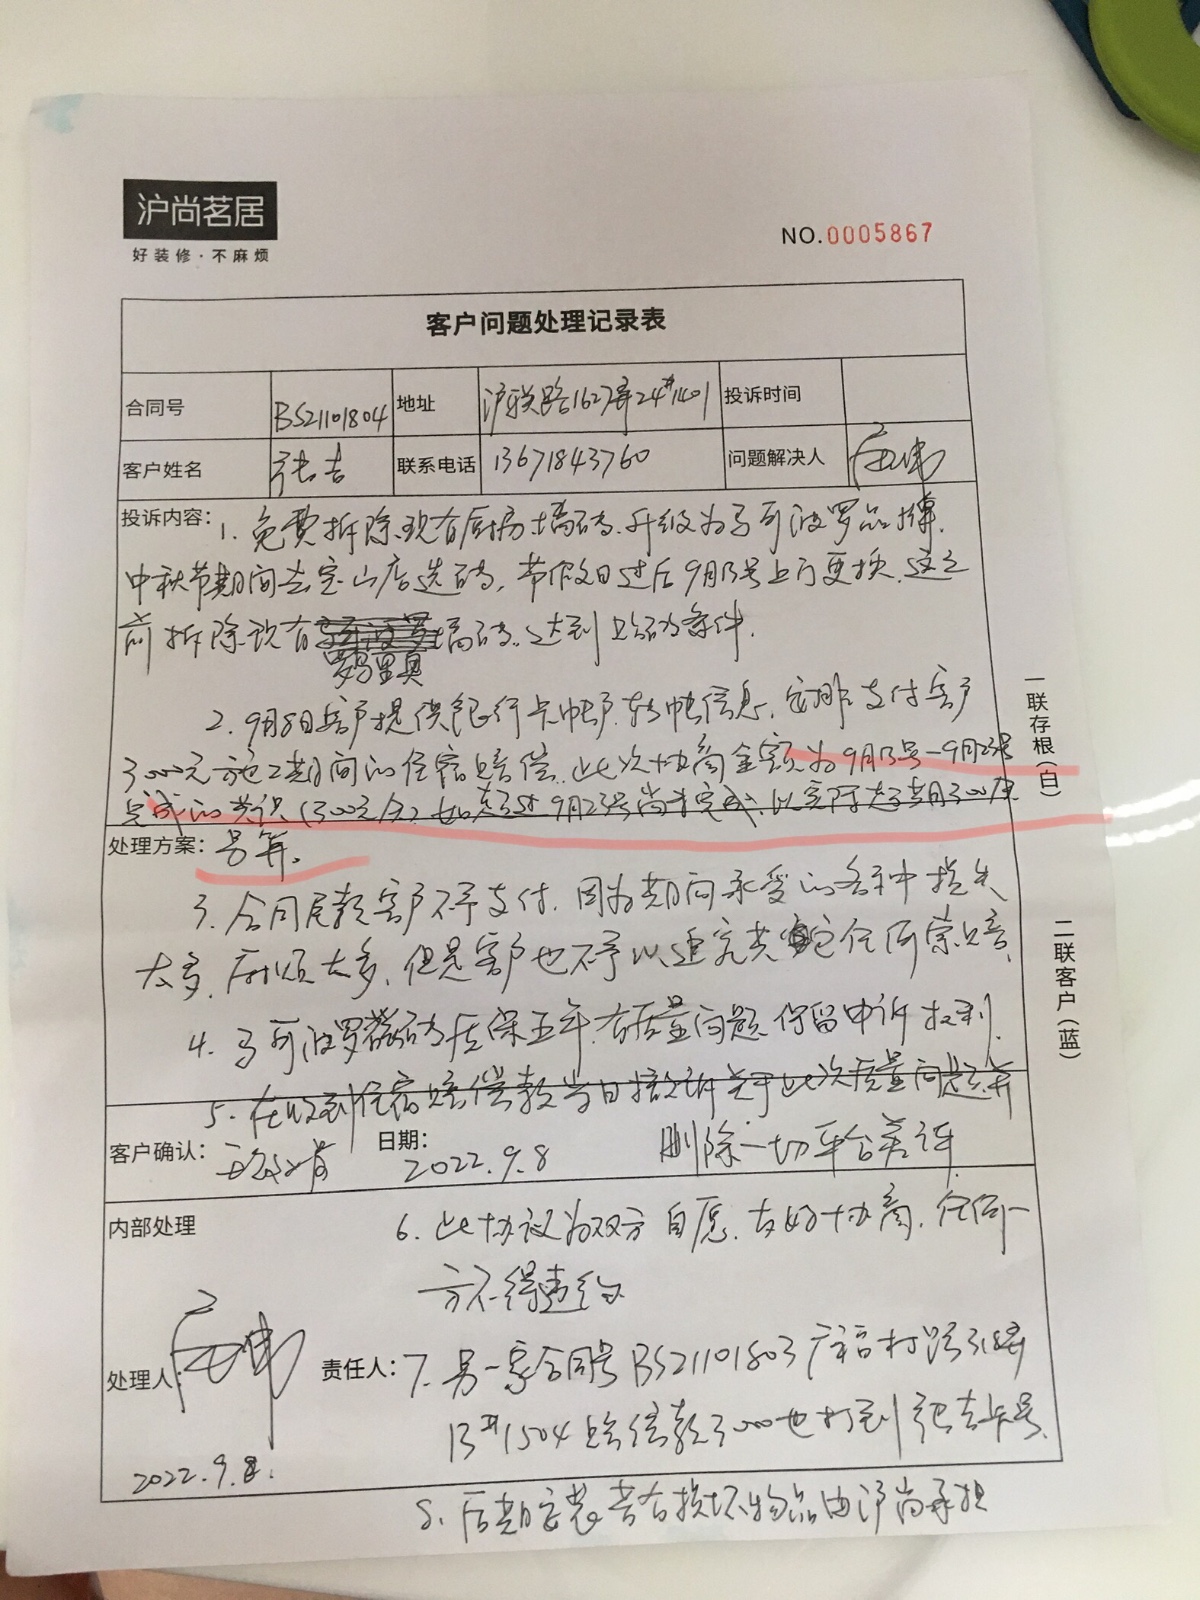 沪尚茗居
好装修·不麻烦
NO.0005867
客户问题处理记录表
合同号 BS21101804 地址 沪联路1627弄24#1401 投诉时间
客户姓名 张吉 联系电话 13671843760 问题解决人
投诉内容：1. 免费拆除现有厨房墙砖.升级为马可波罗品牌.
中秋节期间去宝山店选砖, 节假日过后9月13号上门更换.这之
前拆除现有墙砖.达到贴砖条件.
罗马里奥
2. 9月8日客户提供银行卡帐户.转帐信息, 安排支付客户
3000元施工期间的住宿赔偿.此次协商金额为9月13号-9月23号
完成的共识(300元/天) 如超过9月23号尚未完成, 以实际超期300/天
处理方案：另算.
3. 合同尾款客户不予支付.因为期间承受的各种损失
太多.麻烦太多.但是客户也不予以追究其它任何索赔.
4. 马可波罗瓷砖质保五年.有质量问题.保留申诉权利.
5. 在收到住宿赔偿款当日撤诉关于此次质量问题.并
客户确认： 日期：2022.9.8 删除一切平台差评
内部处理 6. 此协议为双方自愿.友好协商.任何一
方不得违约
处理人： 责任人：7. 另一家合同号BS21101803 广福村路318弄
13#1504 赔偿款3000也打到张吉卡号.
2022.9.8.
8. 后期安装若有损坏物品由沪尚承担
一联存根(白)
二联客户(蓝)